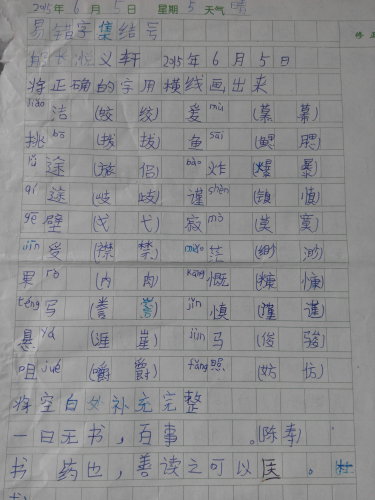 2015年 6 月 5 日 星期 5 天气 晴
易错字集结号
熊长悦义轩 2015 年 6 月 5 日
将正确的字用横线画出来
jiǎo 洁 (皎 绞) 爱 mù (慕 幕)
挑 bō (拔 拨) 鱼 sāi (鳃 腮)
lǚ 途 (旅 侣) bào 炸 (爆 暴)
qí 途 (歧 岐) 谨 shèn (镇 慎)
gē 壁 (戈 弋) 寂 mò (莫 寞)
jīn 受 (襟 禁) miǎo 茫 (缈 渺)
果 rò (内 肉) kāng 慨 (糠 慷)
téng 写 (誊 誉) jǐn 慎 (瑾 谨)
悬 yá (涯 崖) jùn 马 (俊 骏)
咀 jué (嚼 爵) fǎng 照 (妨 仿)
将空白处补充完整
一日无书,百事 。(陈寿)
书 药也,善读之可以医 。